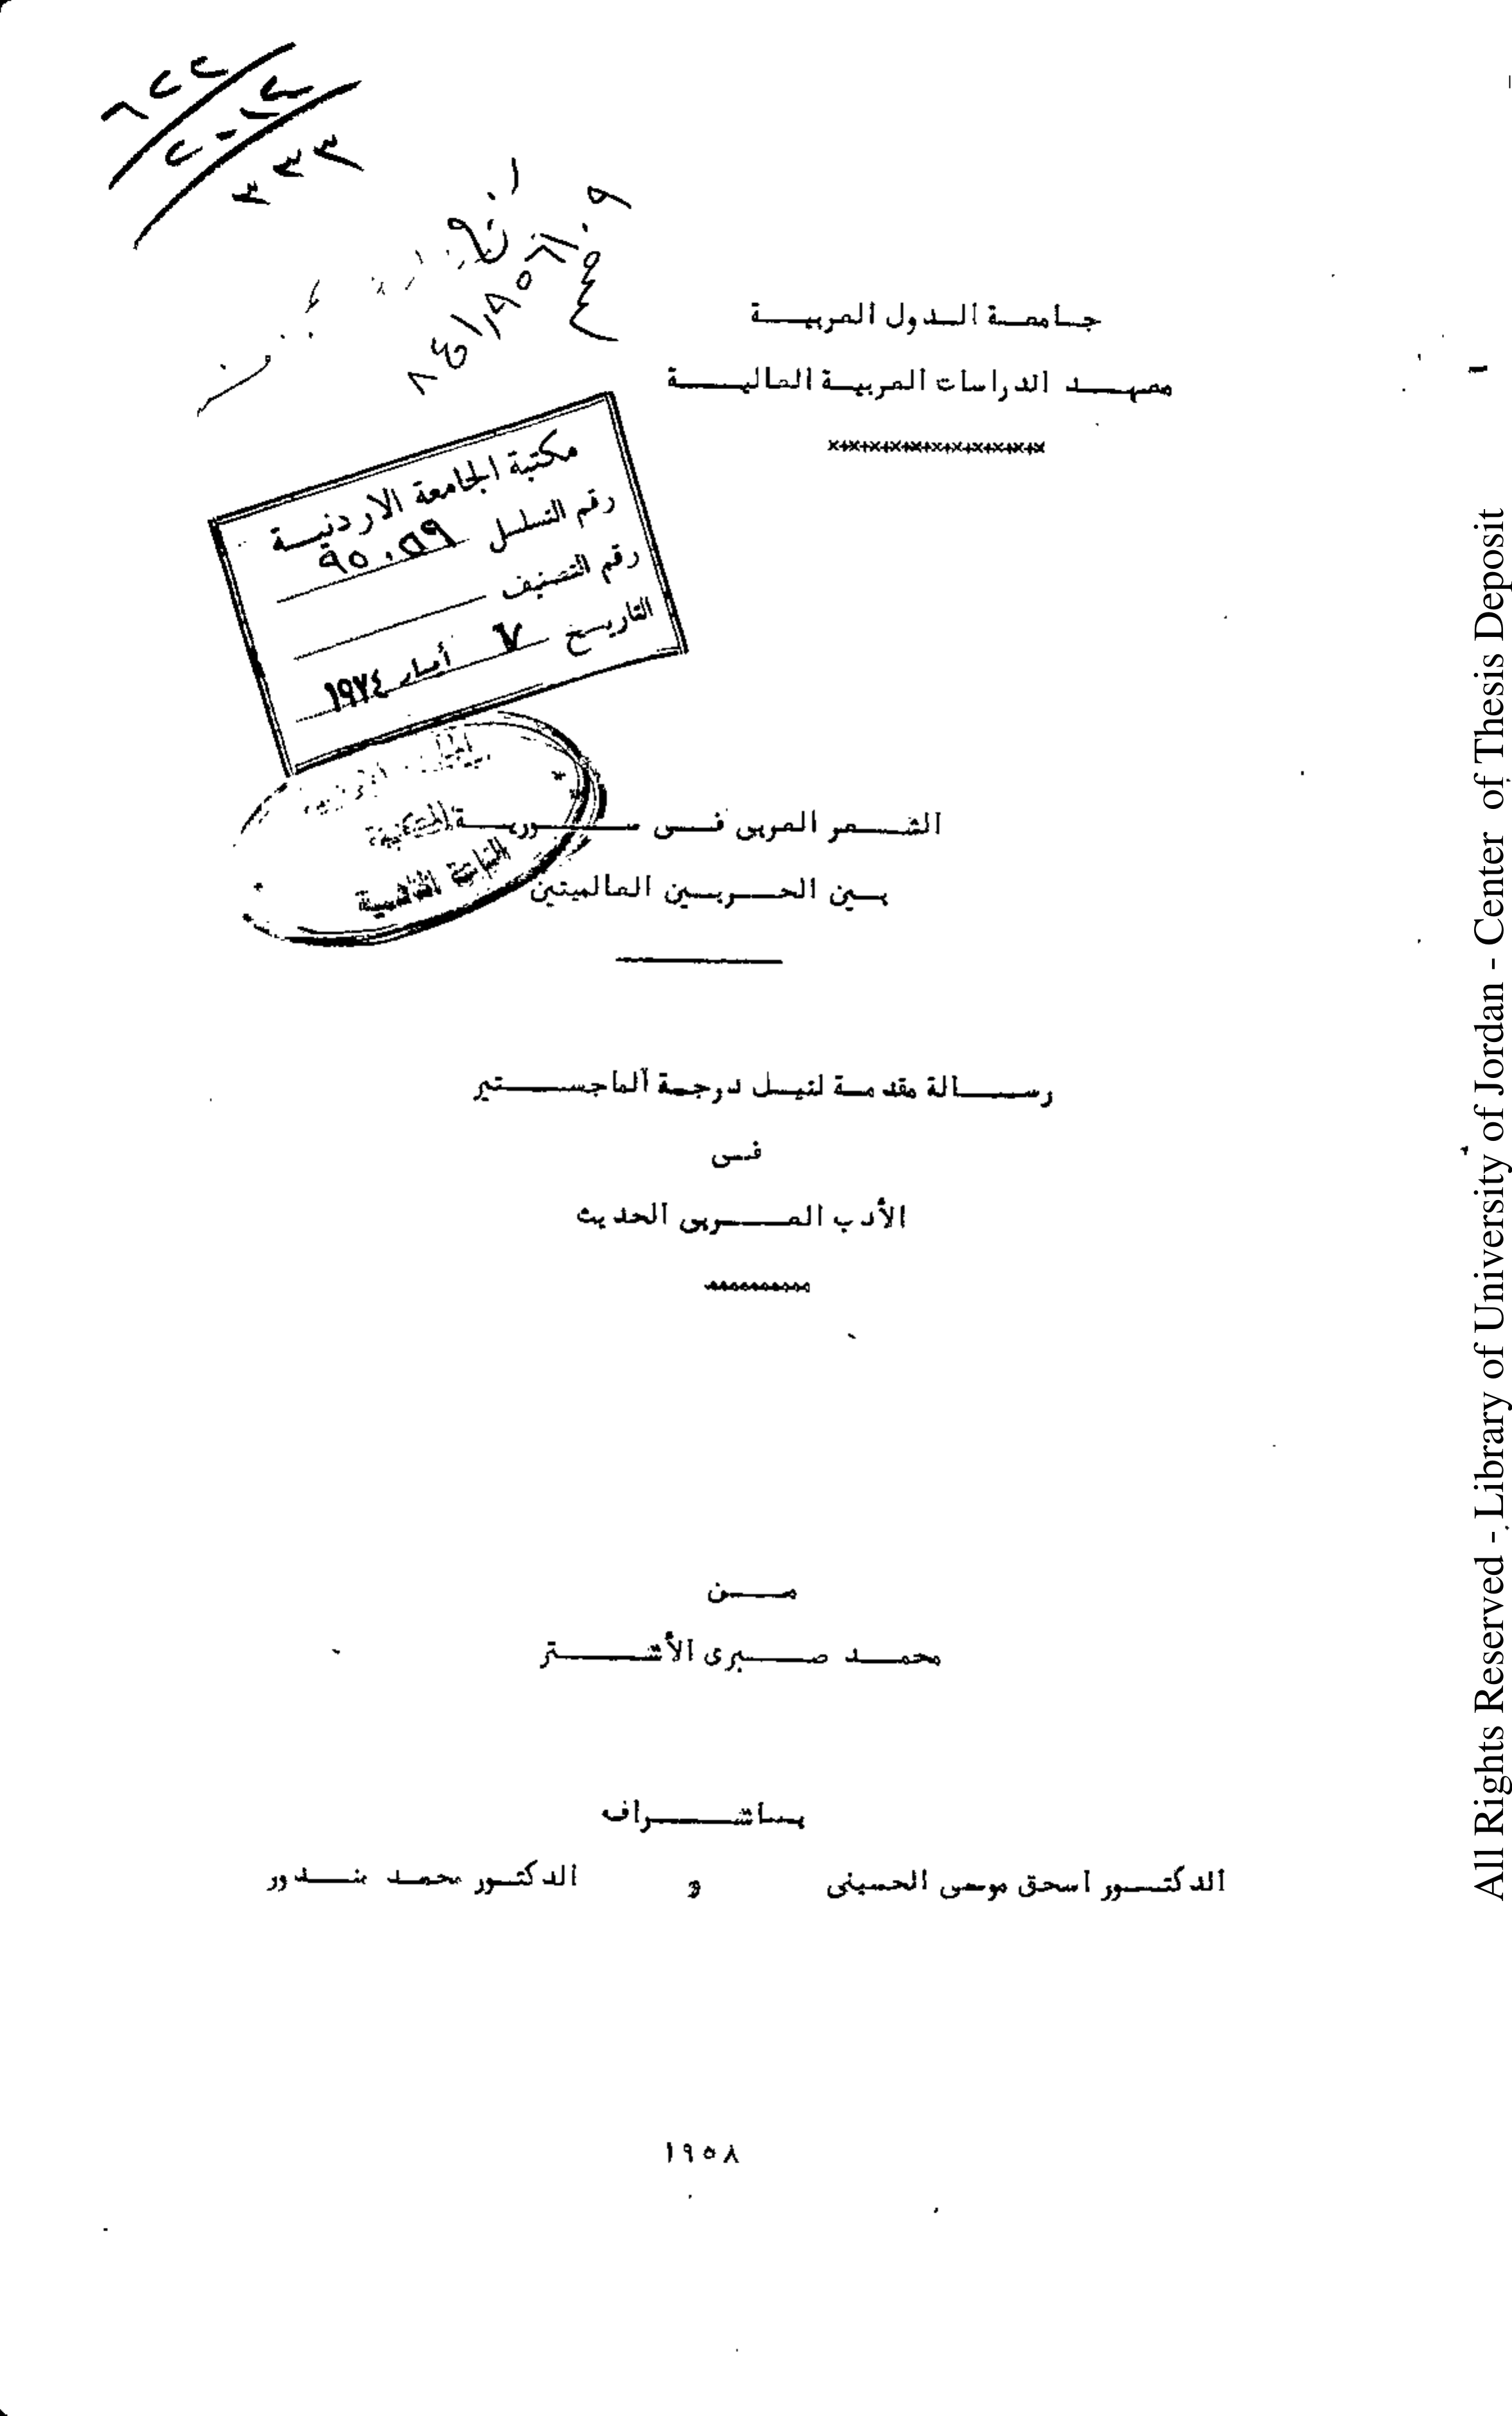 ٣٣٣
جامعة الدول العربية
معهد الدراسات العربية العالية
x+x+x+x+x+x+x+x+x+x+x
مكتبة الجامعة الاردنية
رقم التسلسل
رقم التصنيف
التاريخ ٧ أيار ١٩٧٤
الشعر العربى فى سورية
بين الحربين العالميتين
رسالة مقدمة لنيل درجة الماجستير
فى
الأدب العربى الحديث
من
محمد صبرى الأشتر
باشراف
الدكتور اسحق موسى الحسينى و الدكتور محمد مندور
١٩٥٨
All Rights Reserved - Library of University of Jordan - Center of Thesis Deposit